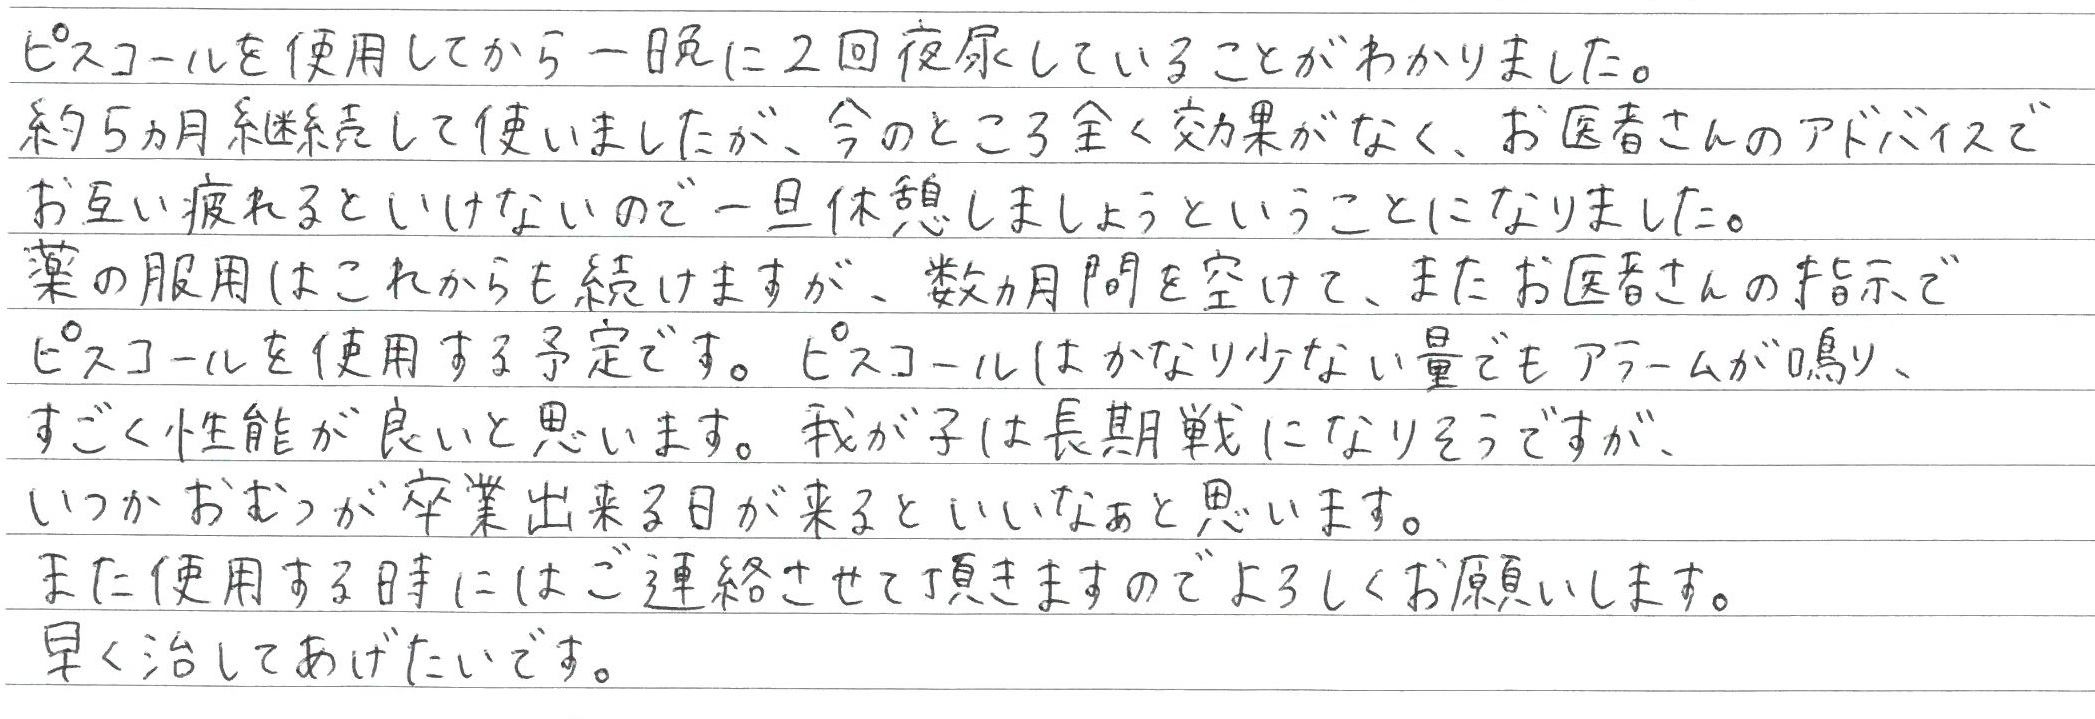 ピスコールを使用してから一晩に2回夜尿していることがわかりました。
約5ヵ月継続して使いましたが、今のところ全く効果がなく、お医者さんのアドバイスで
お互い疲れるといけないので一旦休憩しましょうということになりました。
薬の服用はこれからも続けますが、数ヵ月間を空けて、またお医者さんの指示で
ピスコールを使用する予定です。ピスコールはかなり少ない量でもアラームが鳴り、
すごく性能が良いと思います。我が子は長期戦になりそうですが、
いつかおむつが卒業出来る日が来るといいなぁと思います。
また使用する時にはご連絡させて頂きますのでよろしくお願いします。
早く治してあげたいです。